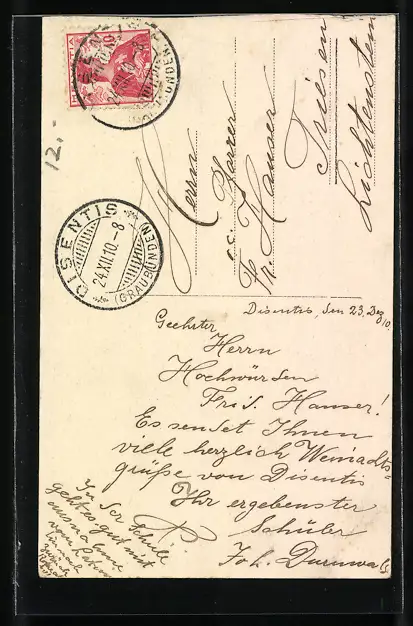 HELVETIA
12.-
DISENTIS
24.XII.10.-8
(GRAUBÜNDEN)
Herrn
Pfarrer
Fr. Hauser
Triesen
Lichtenstein
Disentis, den 23. Dez. 10.
Geehrter
Herrn
Hochwürden
Frid. Hauser!
Es sendet Ihnen
viele herzlich Weinachts-
grüße von Disentis
Ihr ergebenster
Schüler
Joh.
In der Schule
geht es gut mit
ausnahme
vom Latein